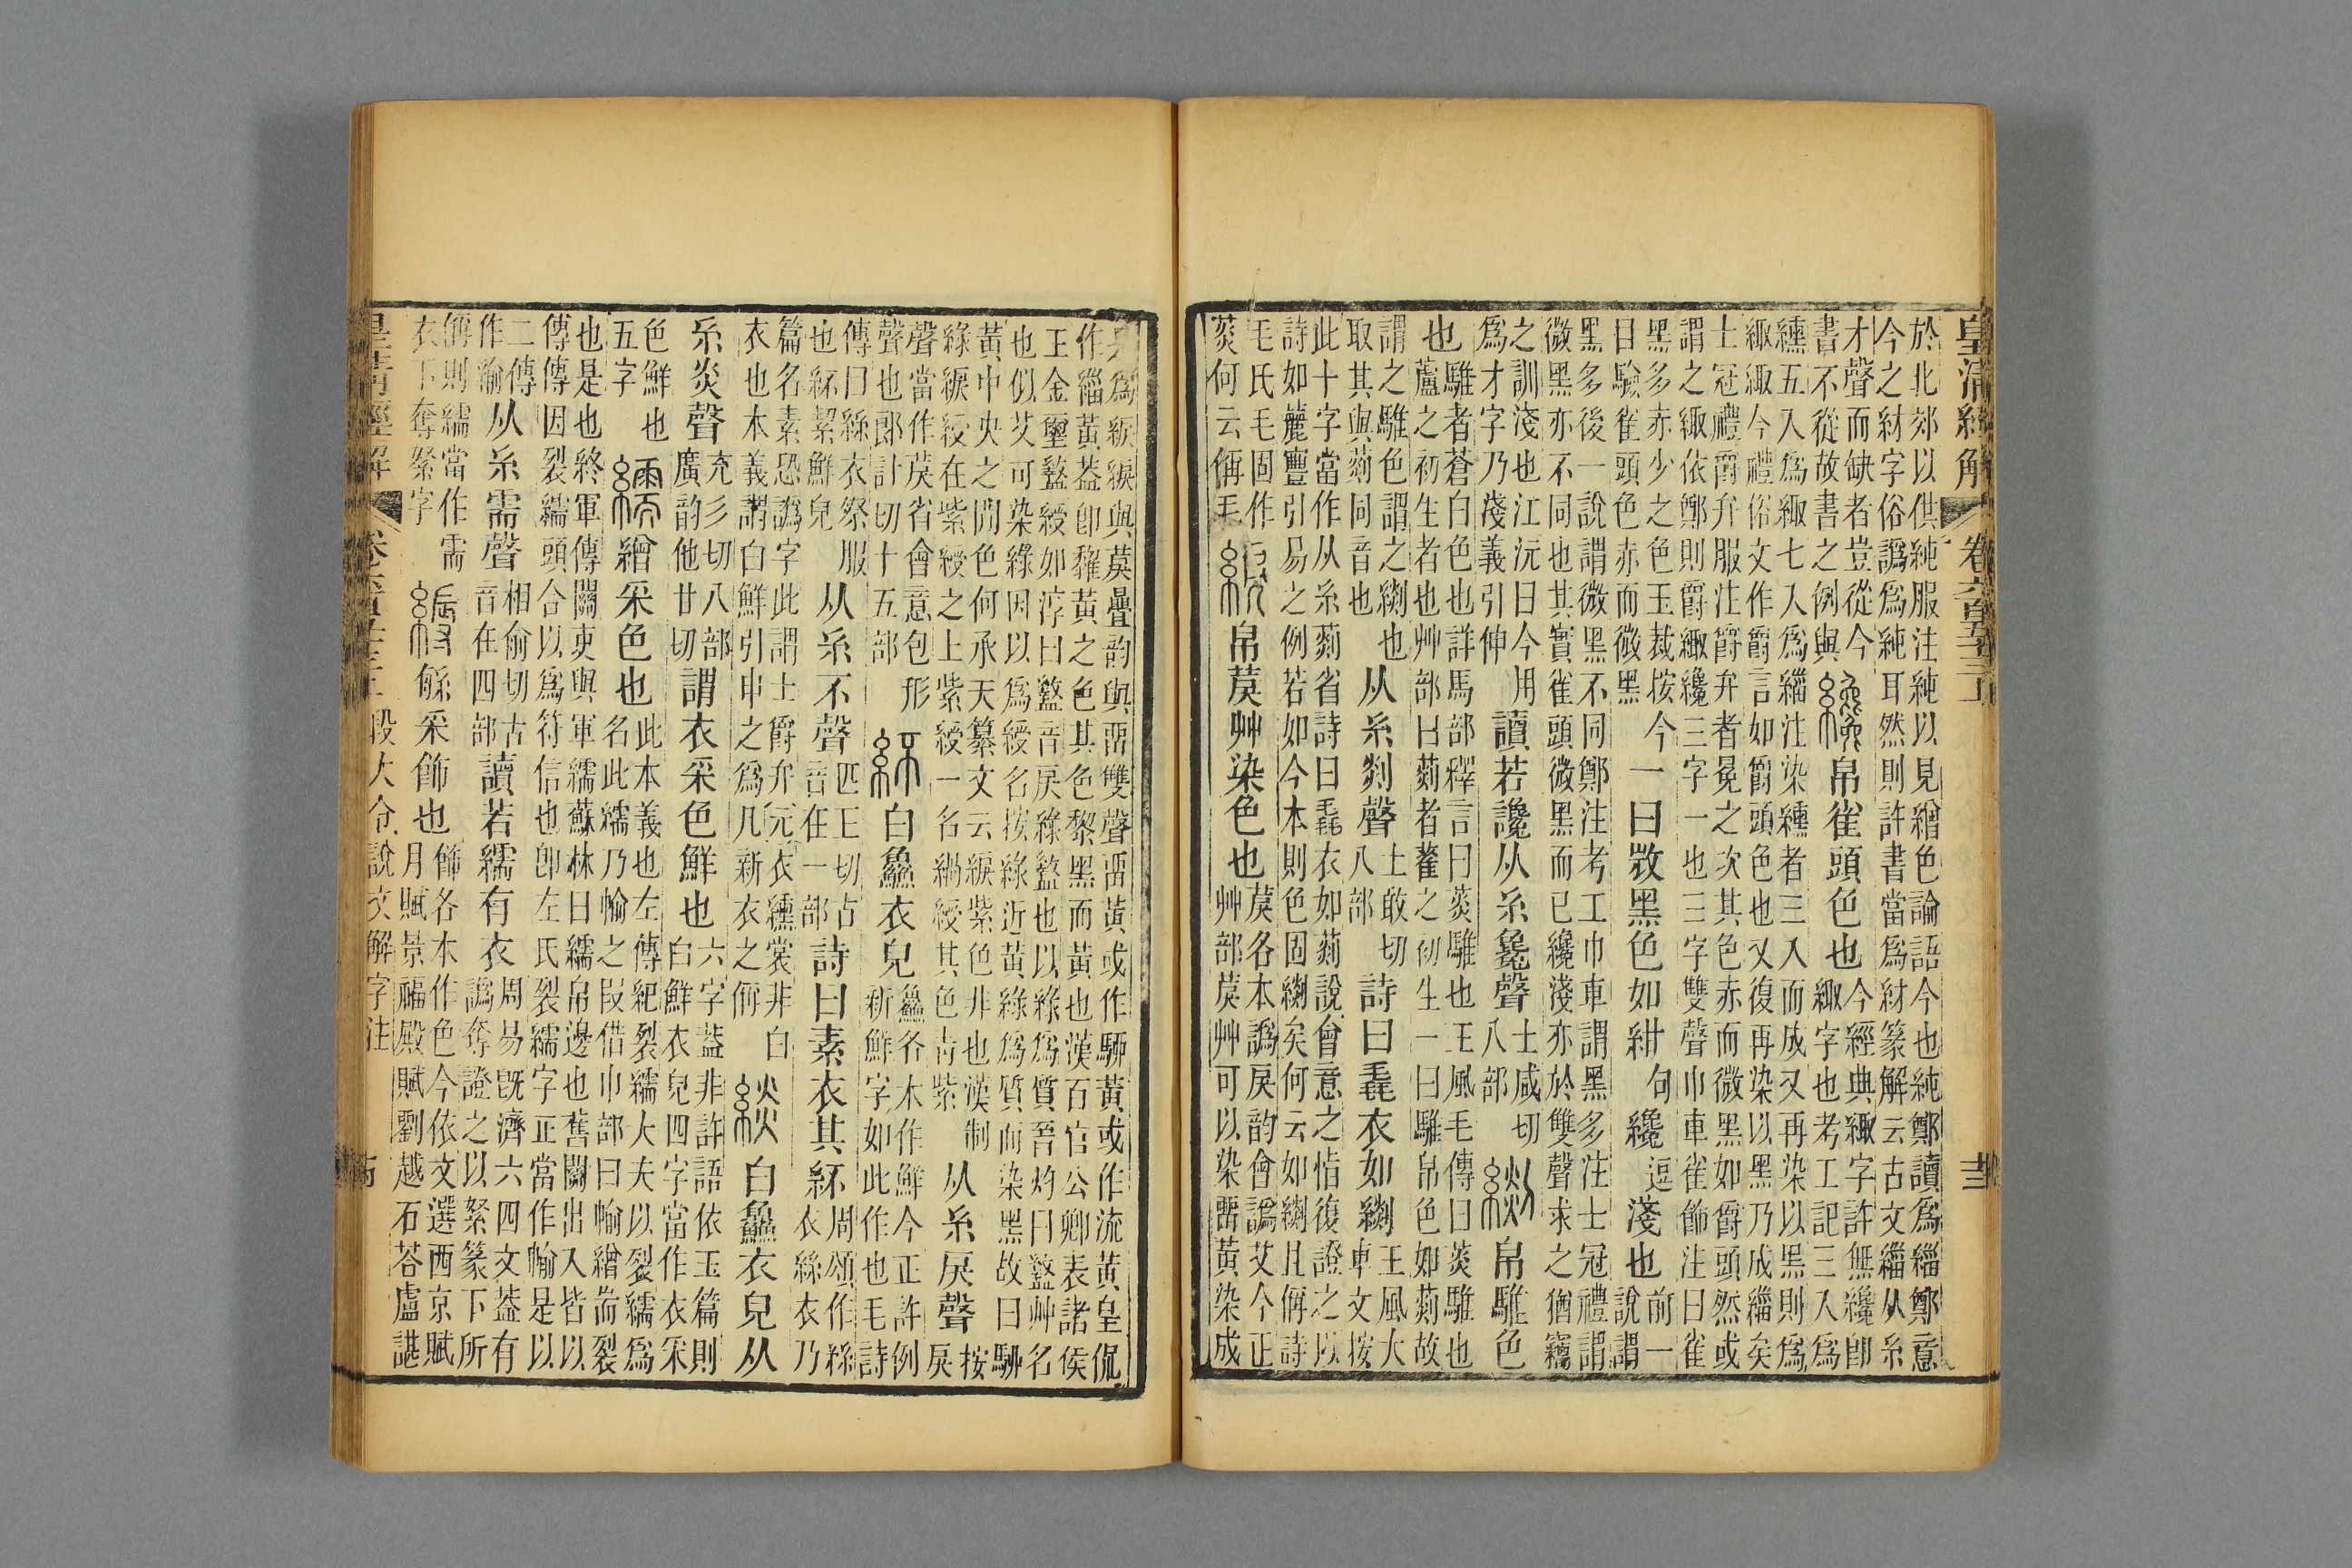 皇清經解 卷六百五十三
於北郊以供純服注純以見繒色論語今也純鄭讀爲緇鄭意
今之材字俗譌爲純耳然則許書當爲材篆解云古文緇从糸
才聲而缺者豈從今
書不從故書之例與
纔 帛雀頭色也
今經典緅字許無纔卽
緅字也考工記三入爲
纁五入爲緅七入爲緇注染纁者三入而成又再染以黑則爲
緅緅今禮俗文作爵言如爵頭色也又復再染以黑乃成緇矣
士冠禮爵弁服注爵弁者冕之次其色赤而微黑如爵頭然或
謂之緅依鄭則爵緅纔三字一也三字雙聲巾車雀飾注曰雀
黑多赤少之色玉裁按今
目驗雀頭色赤而微黑
一曰敚黑色如紺 句 纔 逗 淺也
前一
說謂
黑多後一說謂微黑不同鄭注考工巾車謂黑多注士冠禮謂
微黑亦不同也其實雀頭微黑而已纔淺亦於雙聲求之猶竊
之訓淺也江沅曰今用
爲才字乃淺義引伸
讀若讒从糸毚聲
士咸切
八部
緂 帛騅色
也
騅者蒼白色也詳馬部釋言曰菼騅也王風毛傳曰菼騅也
蘆之初生者也艸部曰䓟者雚之初生一曰騅帛色如䓟故
謂之騅色謂之緂也
取其與䓟同音也
从糸剡聲
土敢切
八部
詩曰毳衣如緂
王風大
車文按
此十字當作从糸䓟省詩曰毳衣如䓟說會意之恉復證之以
詩如麓豐引易之例若如今本則色固緂矣何云如緂且偁詩
毛氏毛固作
菼何云偁毛
綟 帛䓞艸染色也
䓞各本譌戾韵會譌艾今正
艸部䓞艸可以染留黃染成
是爲綟綟與䓞疊韵與留雙聲留黃或作駵黃或作流黃皇侃
作緇黃葢卽黧黃之色其色黎黑而黃也漢百官公卿表諸侯
王金璽盭綬如淳曰盭音戾綠盭也以綠爲質晉灼曰盭艸名
也似艾可染綠因以爲綬名按綠近黃綠爲質而染黑故曰駵
黃中央之閒色何承天纂文云綟紫色非也漢制
綠綟綬在紫綬之上紫綬一名緺綬其色靑紫
从糸戾聲
按
戾
聲當作䓞省會意包形
聲也郎計切十五部
紑 白鱻衣皃
鱻各本作鮮今正許例
新鮮字如此作也毛詩
傳曰絲衣祭服
也紑絜鮮皃
从糸不聲
匹丘切古
音在一部
詩曰素衣其紑
周頌作絲
衣絲衣乃
篇名素恐譌字此謂士爵弁元衣纁裳非白
衣也本義謂白鮮引申之爲凡新衣之偁
緂 白鱻衣皃从
糸炎聲
充彡切八部
廣韵他甘切
謂衣采色鮮也
六字葢非許語依玉篇則
白鮮衣皃四字當作衣采
色鮮也
五字
繻 繒采色也
此本義也左傳紀裂繻大夫以裂繻爲
名此繻乃㡏之叚借巾部曰㡏繒耑裂
也是也終軍傳關吏與軍繻蘇林曰繻帛邊也舊關出入皆以
傳傳因裂繻頭合以爲符信也卽左氏裂繻字正當作㡏是以
二傳
作㡏
从糸需聲
相俞切古
音在四部
讀若繻有衣
周易旣濟六四文葢有
譌奪證之以絮篆下所
偁則繻當作需
衣下奪絮字
縟 繁采飾也
飾各本作色今依文選西京賦
月賦景福殿賦劉越石荅盧諶
皇清經解 卷六百五十三 段大令說文解字注